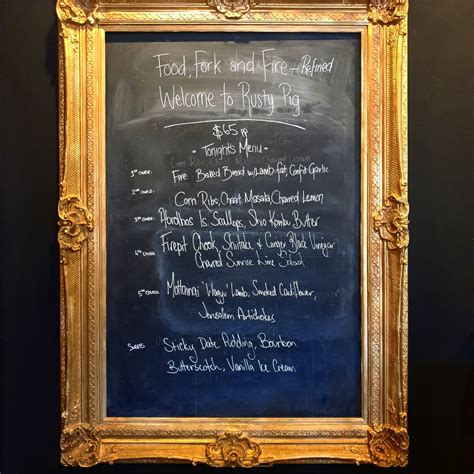 Food, Fork and Fire - Refined
Welcome to Rusty Pig
$65 pp
- Tonight's Menu -
1st course: Fire Baked Bread w Lamb fat, Confit Garlic
2nd course: Corn Ribs, Chaat Masala Charred Lemon
3rd course: Abrolhos Is Scallops, Shio Kombu Butter
4th course Firepit Chook, Shiitake & Ginger Black Vinegar
Charred Sunrise Lime Salad
5th course Mottainai 'Wagyu' Lamb, Smoked Cauliflower,
Jerusalem Artichokes
Sweets: Sticky Date Pudding, Bourbon
Butterscotch, Vanilla Ice Cream